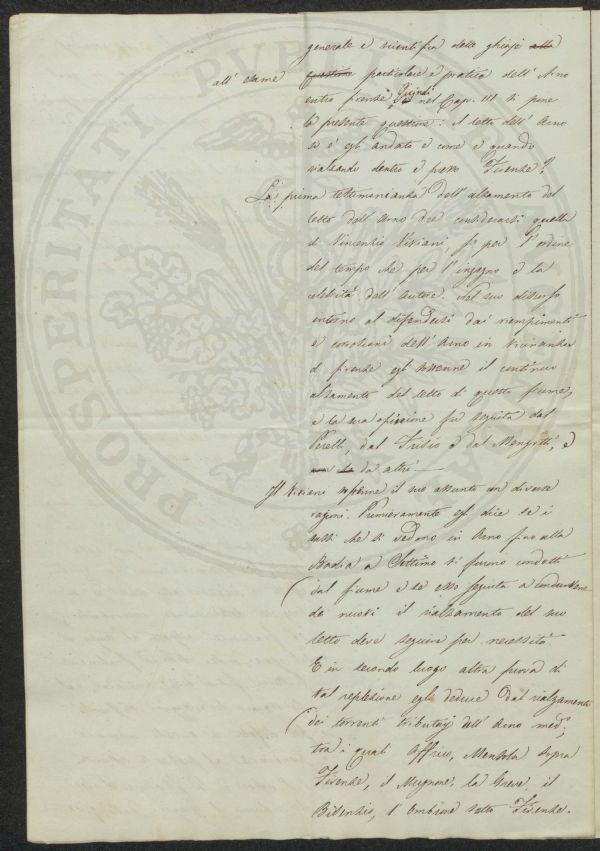 generale e scientifica delle ghiaje alla
all' esame questione particolare e pratica dell' Arno
entro Firenze. Quindi nel Cap. III si pone
la presente questione: il letto dell' Arno
si è egli andato e come e quando
rialzando dentro e presso Firenze?
La prima testimonianza dell' alzamento del
letto dell' Arno dee considerarsi quella
di Vincenzio Viviani, sì per l' ordine
del tempo che per l' ingegno e la
celebrità dell' autore. Nel suo discorso
intorno al difendersi dai riempimenti
e corrosioni dell' Arno in vicinanza
di Firenze egli sostenne il continuo
alzamento del letto di questo fiume,
e la sua opinione fu seguita dal
Perelli, dal Frisio e dal Mengotti, e
da altri —
Il Viviani sostenne il suo assunto con diverse
ragioni. Primieramente egli dice se i
sassi che si vedono in Arno fino alla
Badia a Settimo vi furono condotti
dal fiume e se esso seguita a condurvene
de nuovi il rialzamento del suo
letto deve seguire per necessità.
E in secondo luogo altra prova di
tal replezione egli deduce dal rialzamento
dei torrenti tributarj dell' Arno med.º;
tra i quali Affrico, Mensola sopra
Firenze, il Mugnone, la Greve, il
Bisenzio, l' Ombrone sotto Firenze.
PROSPERITATI PVBLICAE